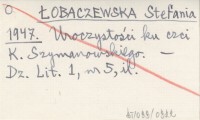 ŁOBACZEWSKA Stefania
1947. Uroczystości ku czci
K. Szymanowskiego. —
Dz. Lit. 1, nr 5, il.